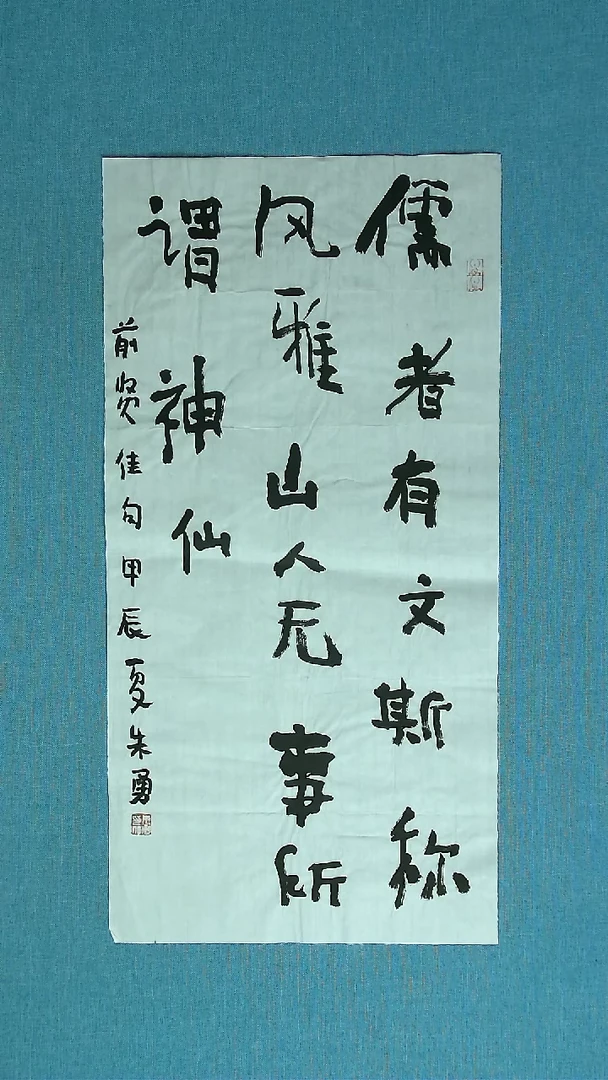 儒者有文斯称
风雅山人无事所
谓神仙
前贤佳句甲辰夏朱勇